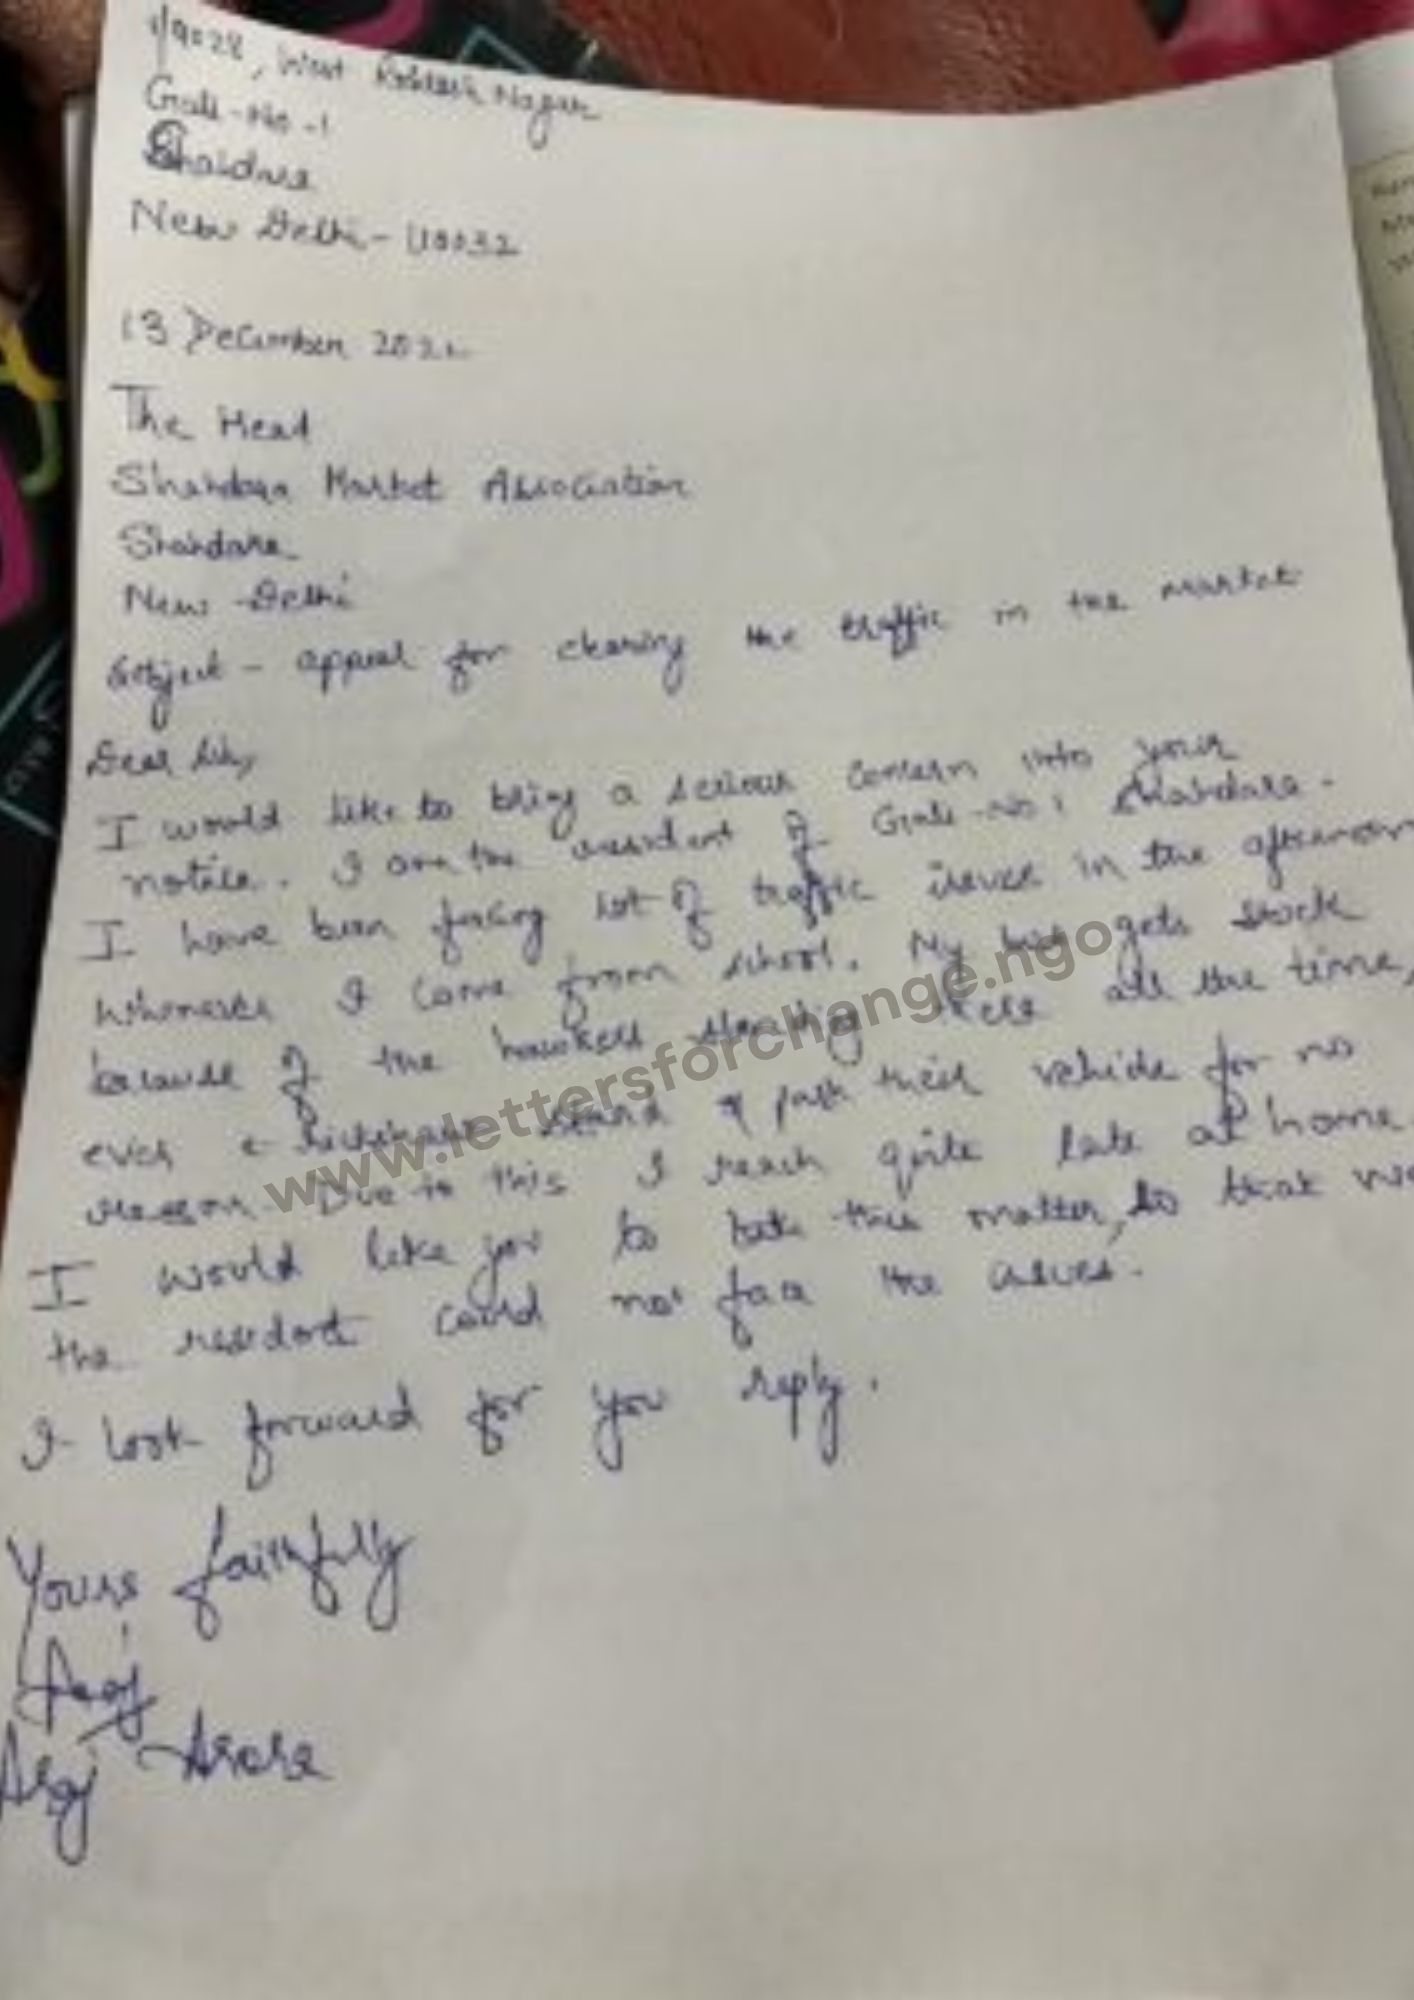 1/9028, West Rohtash Nagar
Gali-No-1
Shahdara
New Delhi-110032
13 December 202
The Head
Shahdara Market Association
Shahdara
New Delhi
Subject - appeal for clearing the traffic in the market
Dear Sir,
I would like to bring a serious concern into your
notice. I am the resident of Gali-No 1 Shahdara.
I have been facing lot of traffic issues in the afternoon
whenever I come from school. My bus gets stuck
because of the hawkers standing there all the time,
even rickshaws stand & park their vehicle for no
reason. Due to this I reach quite late at home.
I would like you to take this matter, so that we
the resident could not face the issues.
I look forward for you reply.
Yours faithfully
Araj
Araj Arora
www.lettersforchange.ngo